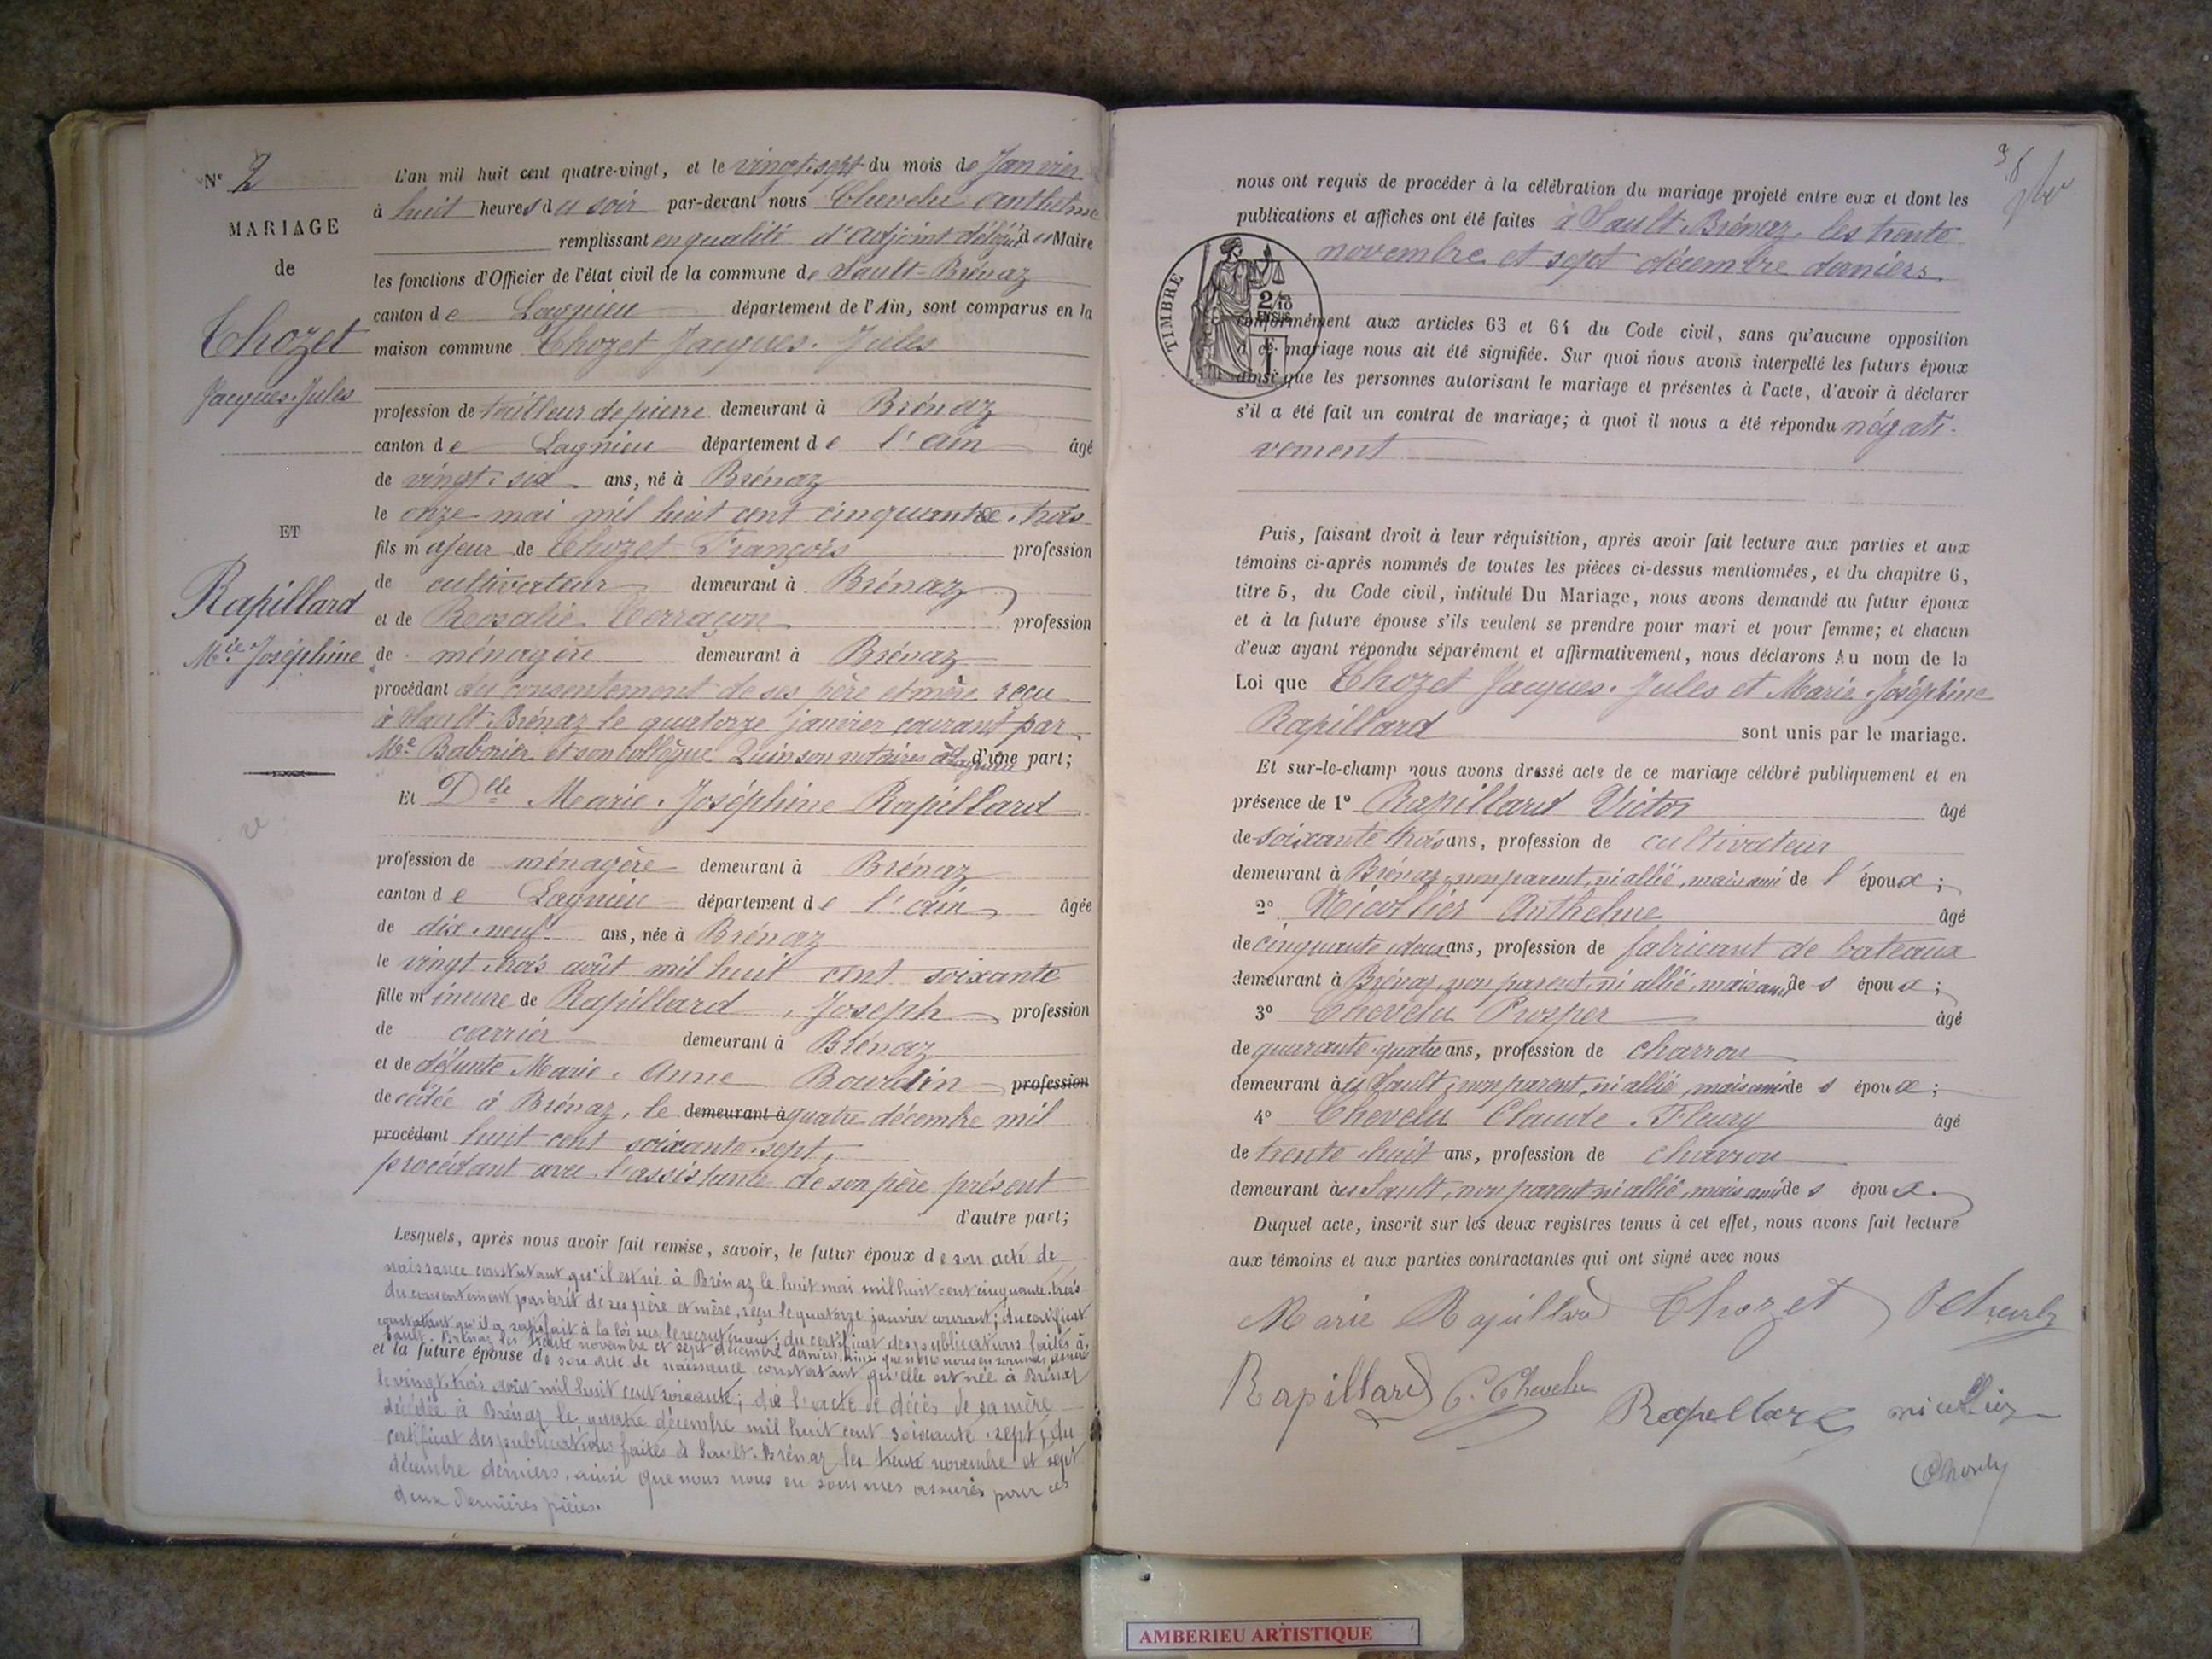 N° 2
MARIAGE
de
Thozet
Jacques-Jules
ET
Rapillard
Mie Joséphine
L'an mil huit cent quatre-vingt, et le vingt-sept du mois de Janvier
à huit heures du soir par-devant nous Chevelu Anthelme
remplissant en qualité d'adjoint délégué des Maire
les fonctions d'Officier de l'état civil de la commune de Sault-Brénaz
canton de Lagnieu département de l'Ain, sont comparus en la
maison commune Thozet Jacques-Jules
profession de tailleur de pierre demeurant à Brénaz
canton de Lagnieu département de l'ain âgé
de vingt-six ans, né à Brénaz
le onze mai mil huit cent cinquante-trois
fils majeur de Thozet François profession
de cultivateur demeurant à Brénaz
et de Rosalie Terraçon profession
de ménagère demeurant à Brénaz
procédant du consentement de ses père et mère reçu
à Sault-Brénaz le quatorze janvier courant par
Me Baborier et son collègue Quinson notaires à Lagnieu d'une part;
Et Dlle Marie-Joséphine Rapillard
profession de ménagère demeurant à Brénaz
canton de Lagnieu département de l'ain âgée
de dix-neuf ans, née à Brénaz
le vingt-trois août mil huit cent soixante
fille mineure de Rapillard, Joseph profession
de carrier demeurant à Brénaz
et de défunte Marie-Anne Bourdin profession
decédée à Brénaz, le demeurant à quatre décembre mil
procédant huit cent soixante-sept,
procédant avec l'assistance de son père présent
d'autre part;
Lesquels, après nous avoir fait remise, savoir, le futur époux de son acte de
naissance constatant qu'il est né à Brénaz le huit mai mil huit cent cinquante-trois
du consentement par écrit de ses père et mère, reçu le quatorze janvier courant; du certificat
constatant qu'il a satisfait à la loi sur le recrutement; du certificat des publications faites à
Sault-Brénaz les trente novembre et sept décembre derniers, ainsi que nous nous en sommes assuré
et la future épouse de son acte de naissance constatant qu'elle est née à Brénaz
le vingt-trois août mil huit cent soixante; de l'acte de décès de sa mère
décédée à Brénaz le quatre décembre mil huit cent soixante-sept; du
certificat des publications faites à Sault-Brénaz les trente novembre et sept
décembre derniers, ainsi que nous nous en sommes assurés pour ces
deux dernières pièces.
nous ont requis de procéder à la célébration du mariage projeté entre eux et dont les
publications et affiches ont été faites à Sault-Brénaz, les trente
novembre et sept décembre derniers
TIMBRE
2/10
EN SUS
conformément aux articles 63 et 64 du Code civil, sans qu'aucune opposition
à ce mariage nous ait été signifiée. Sur quoi nous avons interpellé les futurs époux
ainsi que les personnes autorisant le mariage et présentes à l'acte, d'avoir à déclarer
s'il a été fait un contrat de mariage; à quoi il nous a été répondu négati-
vement
Puis, faisant droit à leur réquisition, après avoir fait lecture aux parties et aux
témoins ci-après nommés de toutes les pièces ci-dessus mentionnées, et du chapitre 6,
titre 5, du Code civil, intitulé Du Mariage, nous avons demandé au futur époux
et à la future épouse s'ils veulent se prendre pour mari et pour femme; et chacun
d'eux ayant répondu séparément et affirmativement, nous déclarons Au nom de la
Loi que Thozet Jacques-Jules et Marie-Joséphine
Rapillard sont unis par le mariage.
Et sur-le-champ nous avons dressé acte de ce mariage célébré publiquement et en
présence de 1° Rapillard Victor âgé
de soixante trois ans, profession de cultivateur
demeurant à Brénaz, non parent, ni allié, mais ami de l'époux;
2° Nicollier Anthelme âgé
de cinquante deux ans, profession de fabricant de bateaux
demeurant à Brénaz, non parent, ni allié, mais ami des époux;
3° Chevelu Prosper âgé
de quarante-quatre ans, profession de charron
demeurant au Sault, non parent, ni allié, mais ami des époux;
4° Chevelu Claude-Fleury âgé
de trente-huit ans, profession de charron
demeurant au Sault, non parent ni allié, mais ami des époux.
Duquel acte, inscrit sur les deux registres tenus à cet effet, nous avons fait lecture
aux témoins et aux parties contractantes qui ont signé avec nous
Marie Rapillard Thozet
Rapillard C. Chevelu Rapellard nicollier
AMBERIEU ARTISTIQUE